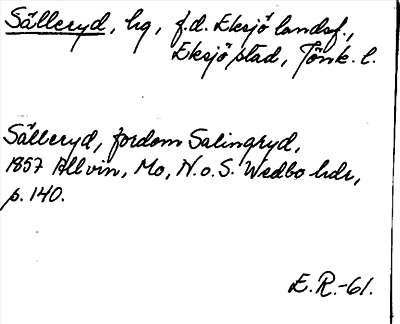 Sälleryd, hg, f.d. Eksjö landsf.,
Eksjö stad, Jönk. l.
Sälleryd, fordom Salingryd,
1857 Allvin, Mo, N. o. S. Wedbo hdr,
p. 140.
E. R.-61.